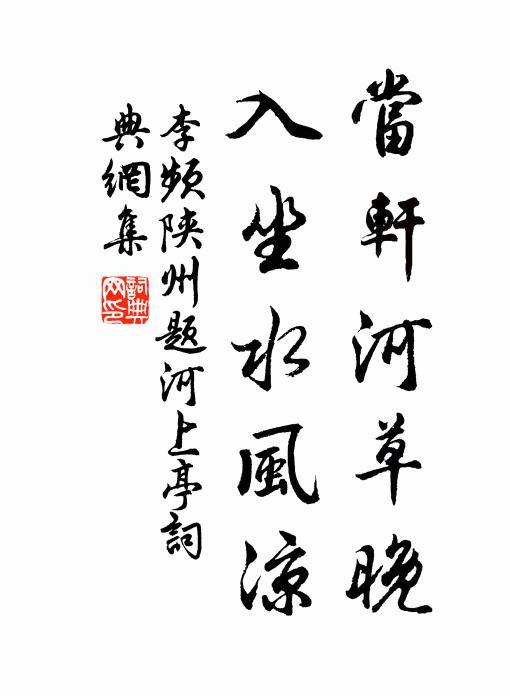 當軒河草晚
入坐水風涼
李頻陝州題河上亭詞
典網集
詞典网印